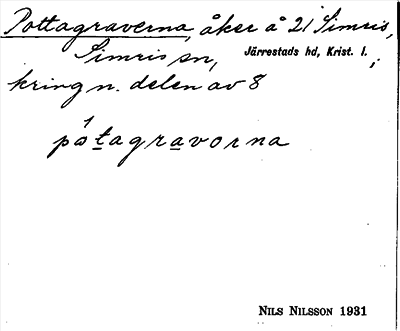 Pottagraverna, åker å 21 Simris,
Simris sn, Järrestads hd, Krist. l.;
kring n. delen av 8
1
patagravorna
NILS NILSSON 1931